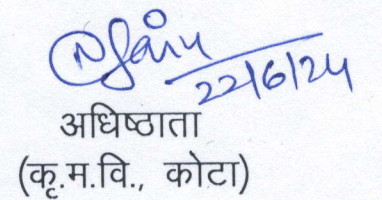 22/6/24
अधिष्ठाता
(कृ.म.वि., कोटा)